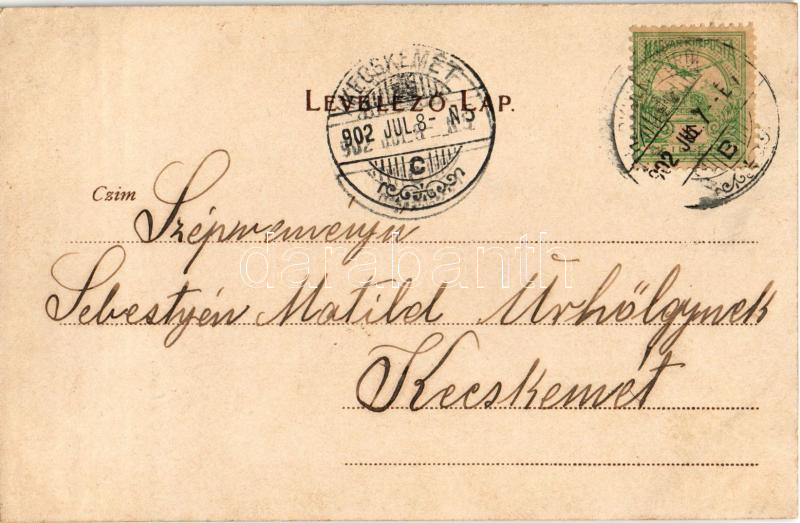 LEVELEZŐ LAP.
MAGYAR KIR. POSTA
KECSKEMÉT
902 JUL. 8- N.5
C
902 JUL 7
B
Czim
Szépreményű
Sebestyén Matild Urhölgynek
Kecskemét
darabanth